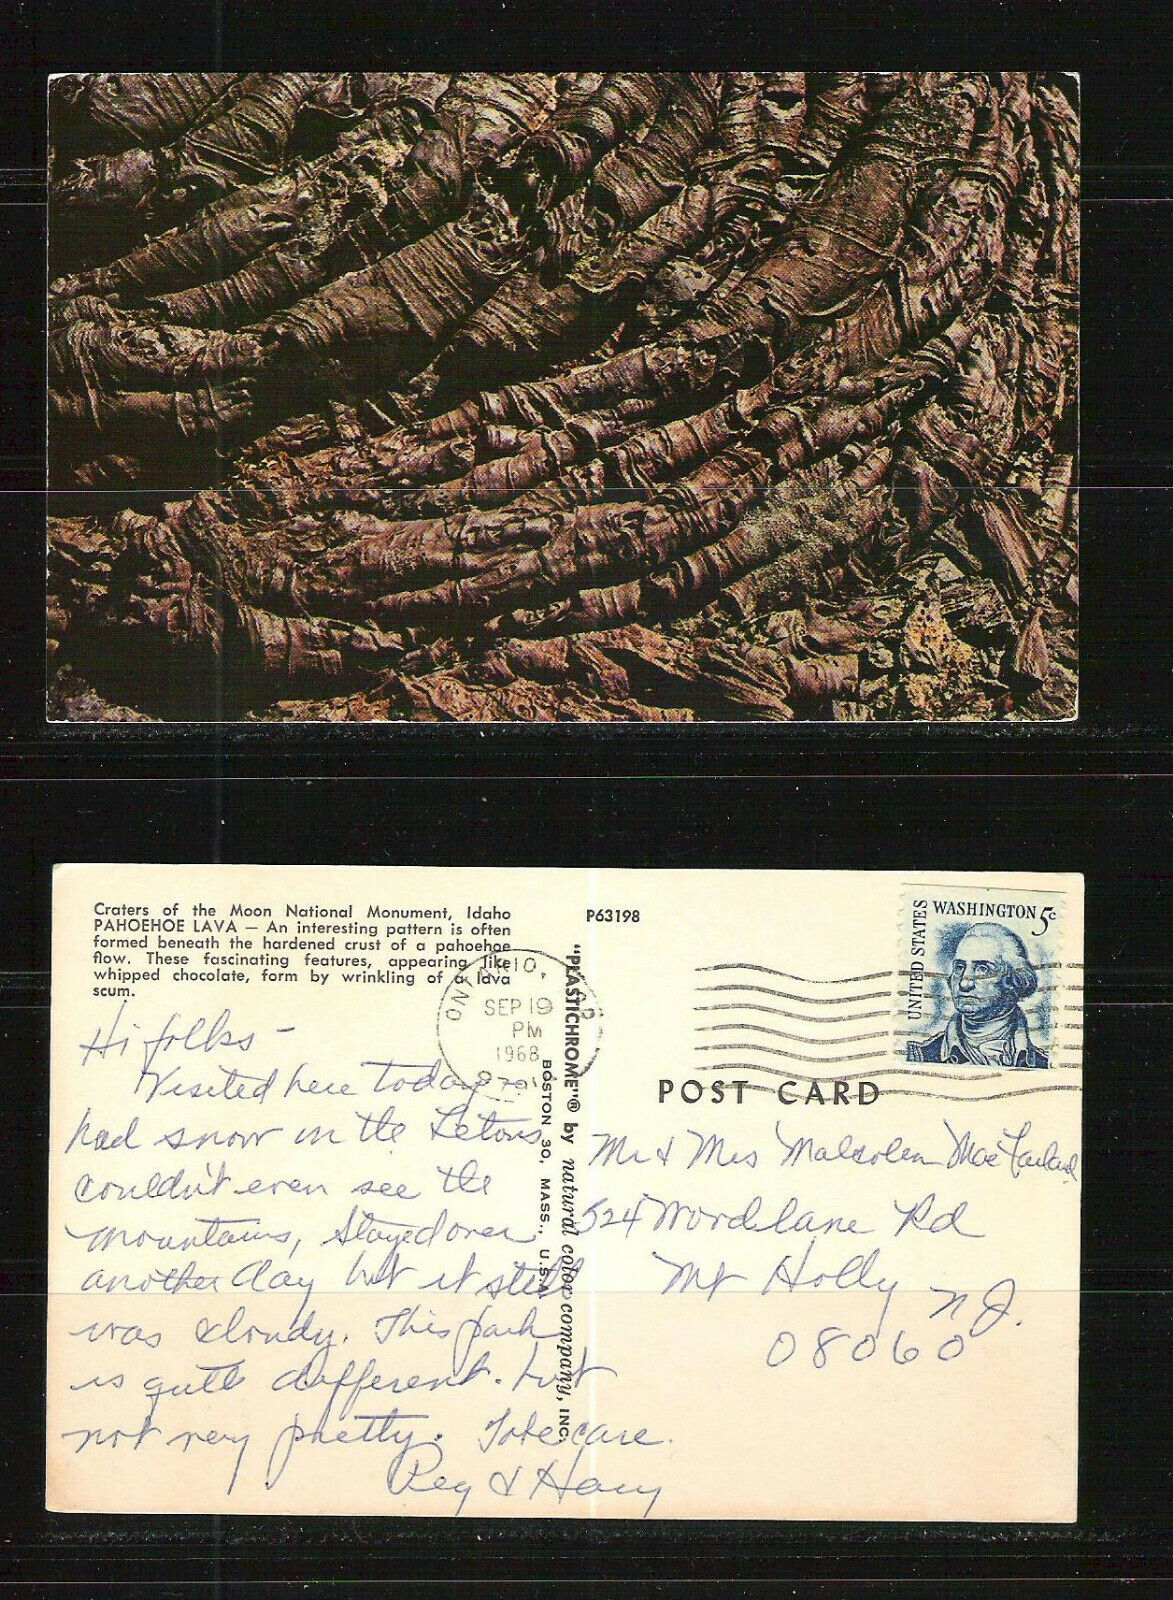 Craters of the Moon National Monument, Idaho
PAHOEHOE LAVA — An interesting pattern is often
formed beneath the hardened crust of a pahoehoe
flow. These fascinating features, appearing like
whipped chocolate, form by wrinkling of a lava
scum.
P63198
"PLASTICHROME"® by natural color company, INC.
BOSTON 30, MASS., U.S.A.
ONTARIO, O
SEP 19
PM
1968
UNITED STATES
WASHINGTON 5c
POST CARD
Hi folks –
Visited here today
had snow in the Tetons
couldn't even see the
mountains, Stayed over
another day but it still
was cloudy. This park
is quite different. but
not very pretty. Take care.
Peg & Harry
Mr & Mrs Malcolm MacFarland
524 Woodlane Rd
Mt Holly N.J.
08060